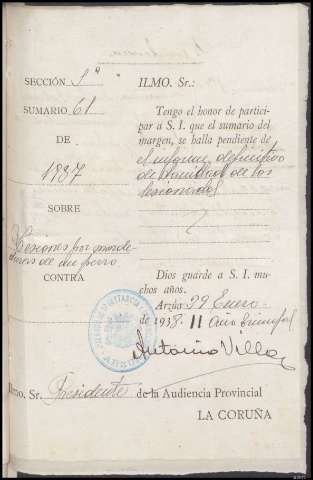 SECCIÓN 1ª
SUMARIO 61
DE
1937
SOBRE
Lesiones por morde
duras de un perro
CONTRA
ILMO. Sr.:
Tengo el honor de partici-
par a S. I. que el sumario del
margen, se halla pendiente de
el informe definitivo
de sanidad de los
lesionados
Dios guarde a S. I. mu-
chos años.
Arzúa 29 Enero
de 1938. II Año Triunfal
Antonio Villar
Ilmo. Sr. Presidente de la Audiencia Provincial
LA CORUÑA